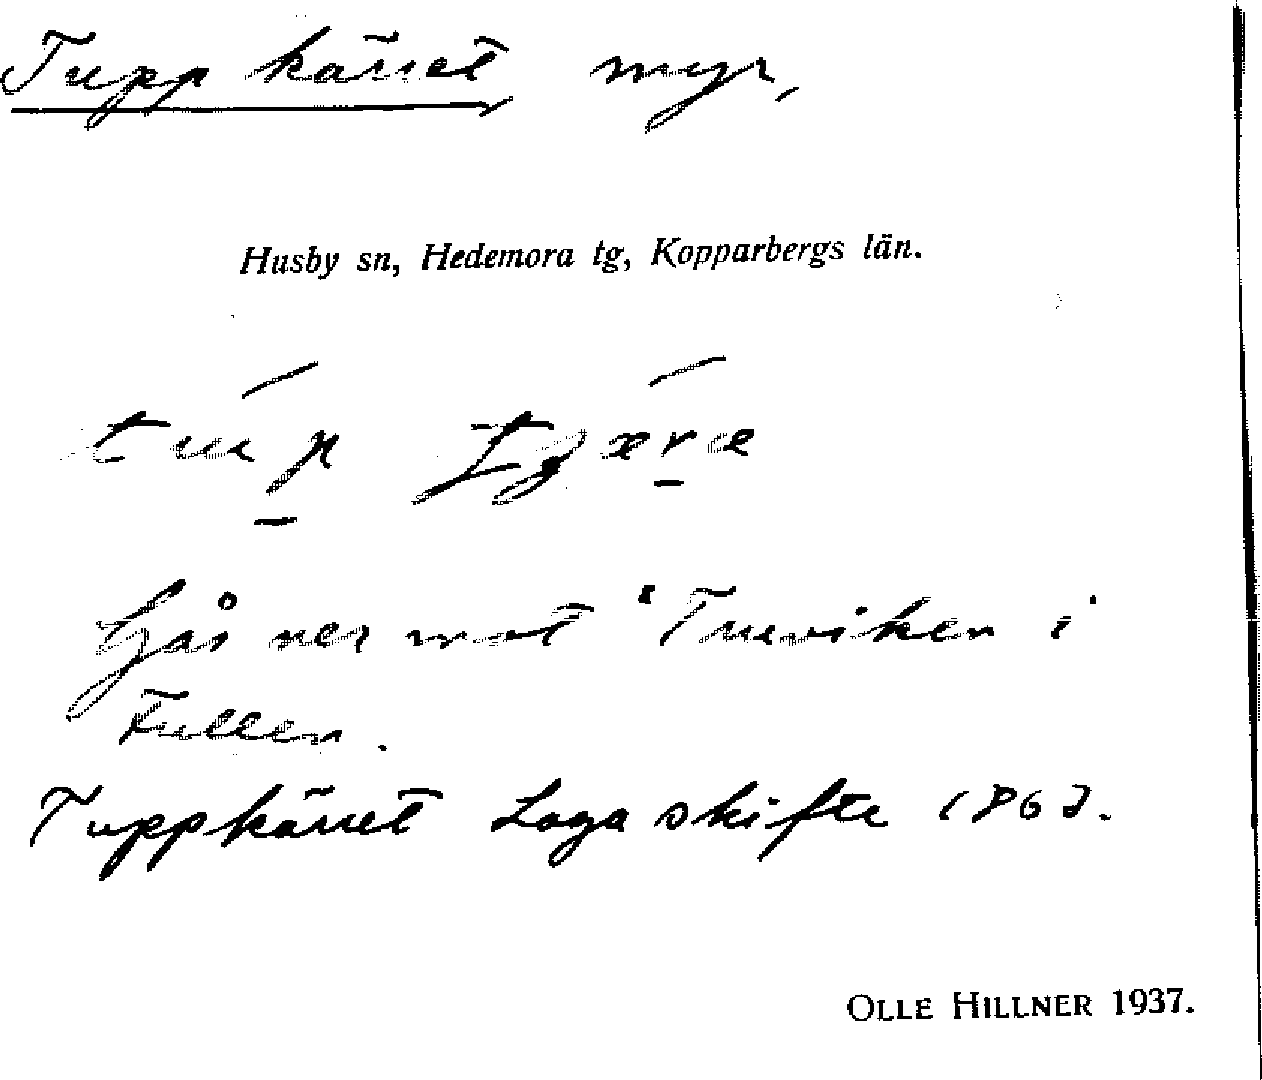 Tuppkärret myr,
Husby sn, Hedemora tg, Kopparbergs län.
Går ner mot Tuviken i
Fullen.
Tuppkärret Laga skifte 1863.
OLLE HILLNER 1937.